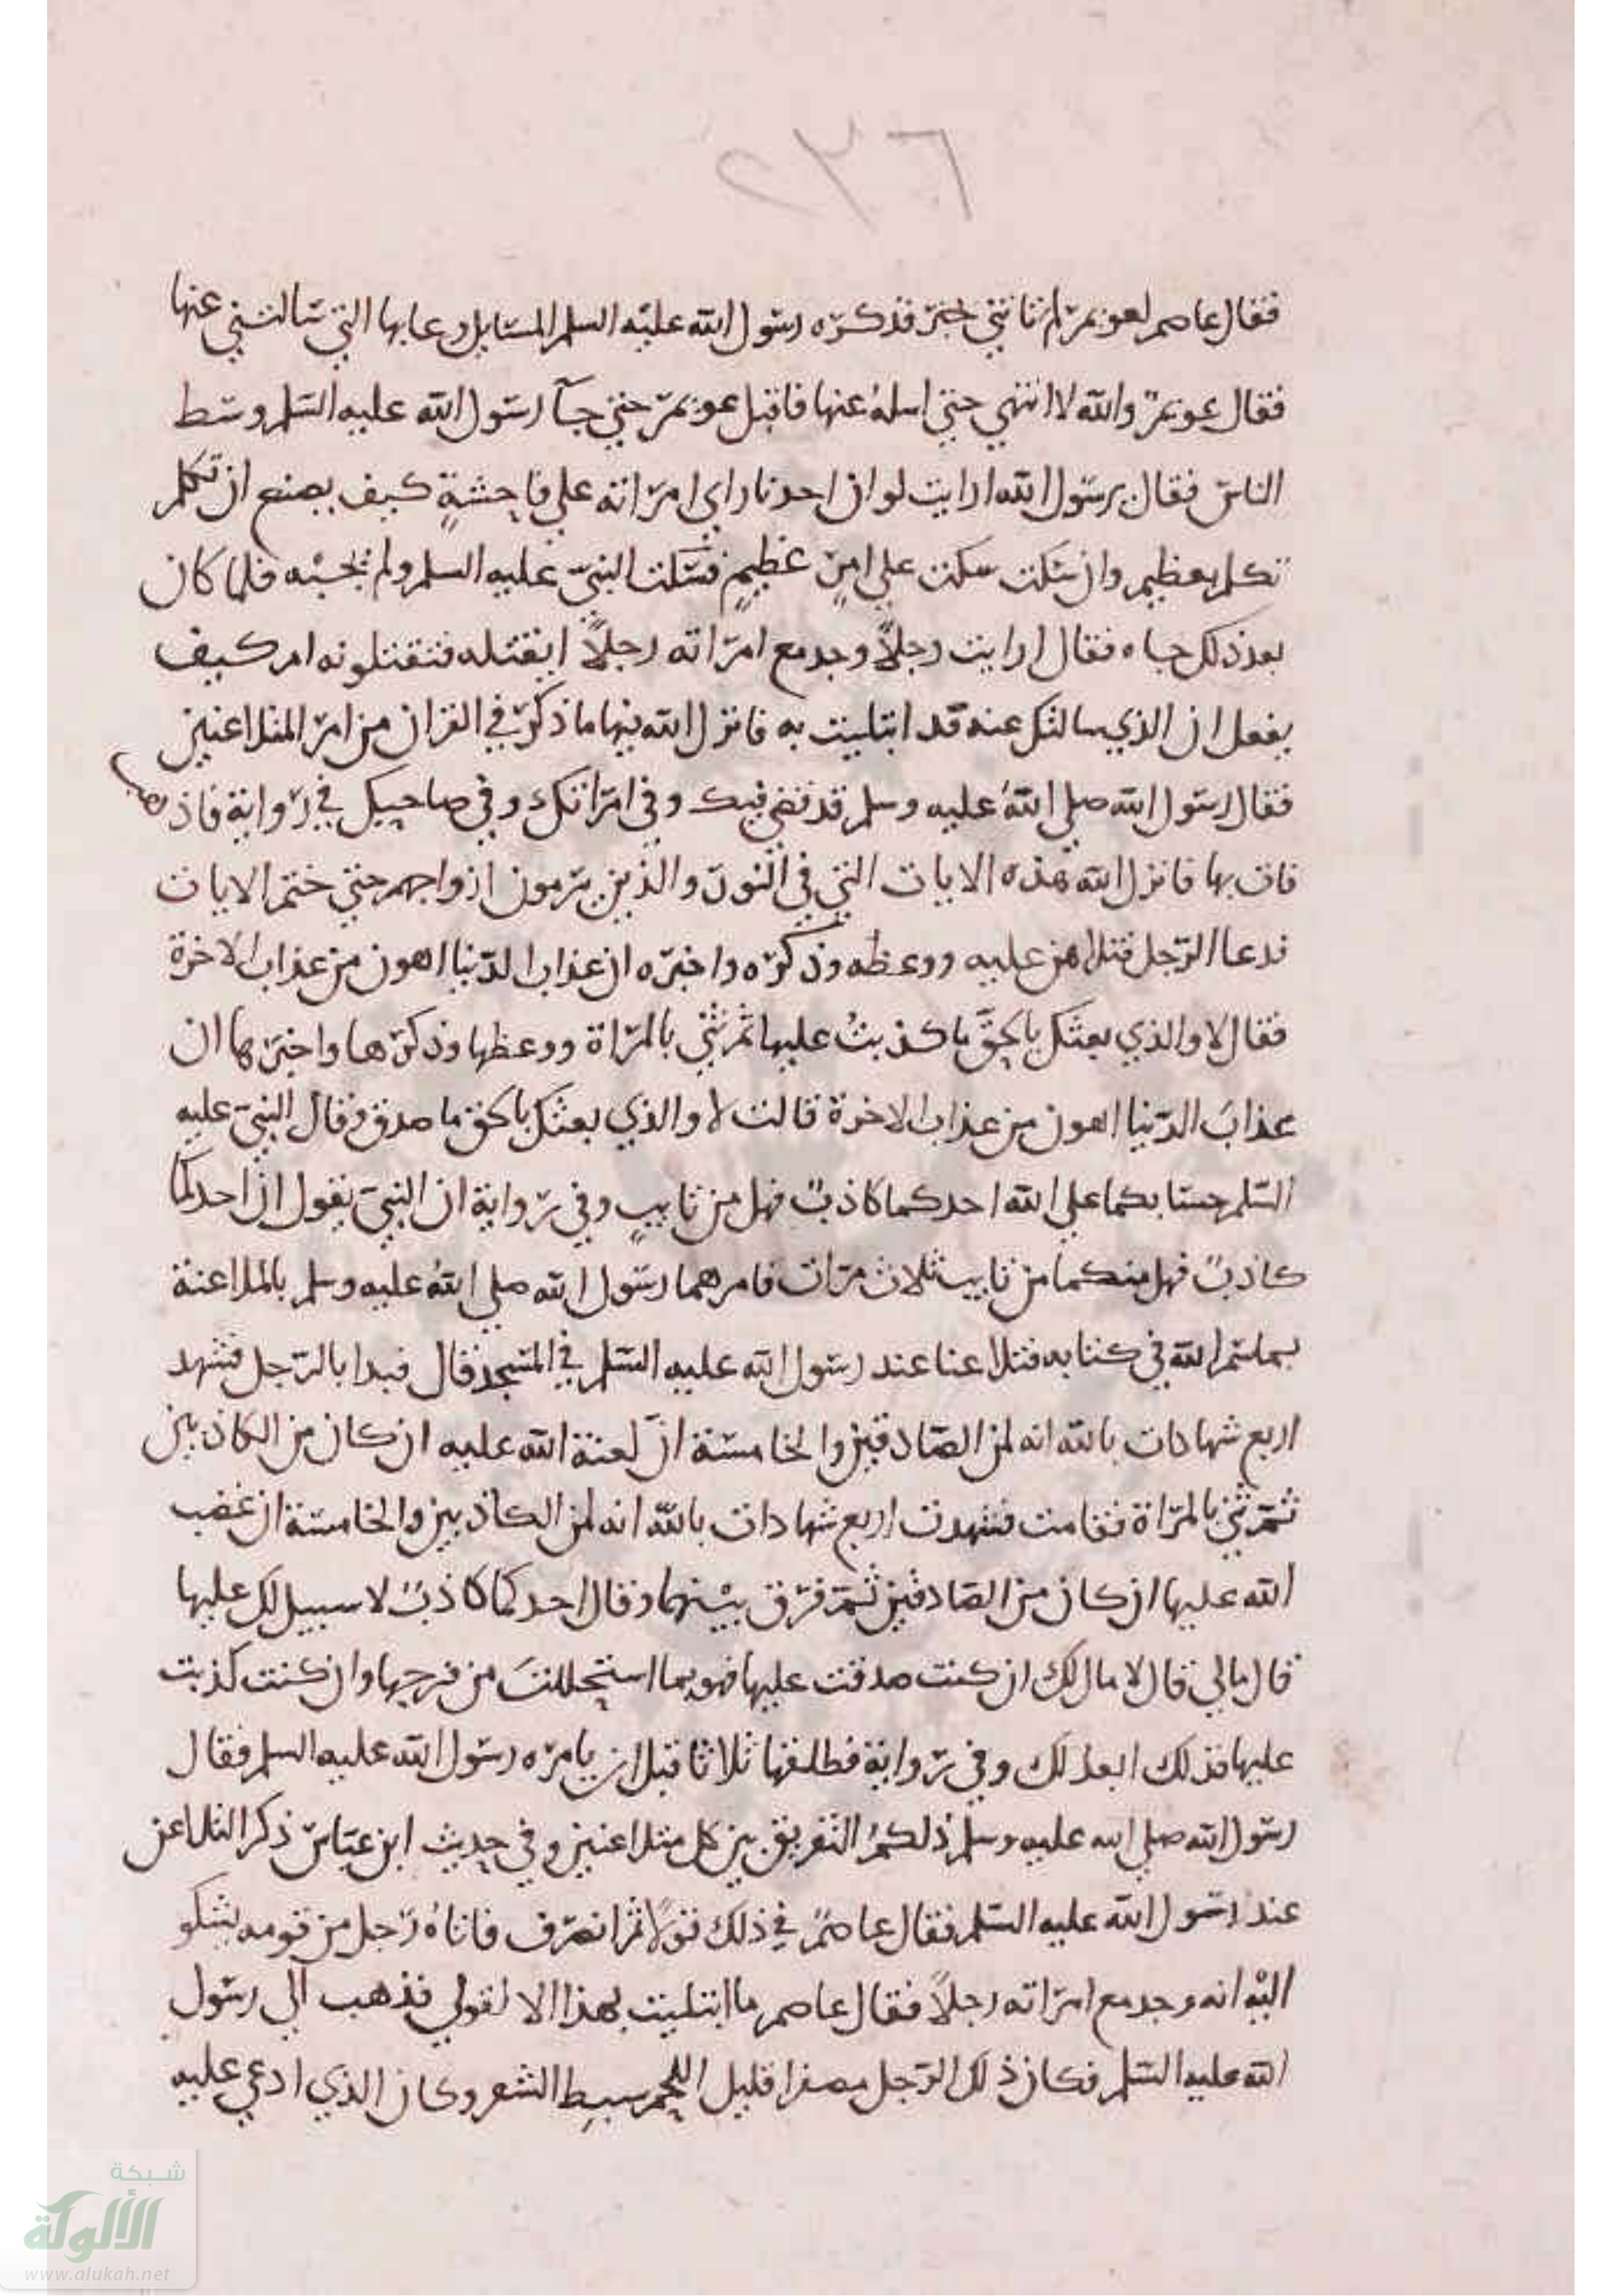 ٢٣٦
فقال عاصم لعويمر لم تاتني بخير قد كره رسول الله عليه السلم المسايل وعابها التي سالتني عنها
فقال عويمر والله لا انتهي حتي اسله عنها فاقبل عويمر حتي جآ رسول الله عليه السلم وسط
الناس فقال يرسول الله ارايت لو ان احدنا راي امراته علي فاحشةٍ كيف يصنع ان تكلم
تكلم بعظيم وان سكت سكت علي امرٍ عظيمٍ فسكت النبي عليه السلم ولم يجبه فلما كان
بعد ذلك جاه فقال ارايت رجلاً وجد مع امراته رجلاً ايقتله فتقتلونه ام كيف
يفعل ان الذي سالتك عنه قد ابتليت به فانزل الله فيها ما ذكر في القران من امر المتلاعنين
فقال رسول الله صلي اللهُ عليه وسلم قد قضي فيك وفي امراتك وفي صاحبك في رواية فاذهب
فات بها فانزل الله هذه الايات التي في النور والذين يرمون ازواجهم حتي ختم الايات
فدعا الرجل فتلاهن عليه ووعظه وذكره واخبره ان عذاب الدنيا اهون من عذاب الاخرة
فقال لا والذي بعثك بالحق ما كذبتُ عليها ثم ثني بالمراة ووعظها وذكرها واخبرها ان
عذابَ الدنيا اهون من عذاب الاخرة قالت لا والذي بعثك بالحق ما صدق وقال النبي عليه
السلم حسابكما علي الله احدكما كاذبٌ فهل من تايبٍ وفي رواية ان النبي يقول ان احدكما
كاذبٌ فهل منكما من تايب ثلاث مرات فامرهما رسول الله صلي اللهُ عليه وسلم بالملاعنة
بما سم الله في كتابه فتلاعنا عند رسول الله عليه السلم في المسجد قال فبدا بالرجل فشهد
اربع شهادات بالله انه لمن الصادقين والخامسة انَّ لعنة الله عليه ان كان من الكاذبين
ثم ثني بالمراة فقامت فشهدت اربع شهادات بالله انه لمن الكاذبين والخامسة ان غضب
الله عليها ان كان من الصادقين ثم فرق بينهما وقال احدكما كاذبٌ لا سبيل لك عليها
قال مالي قال لا مال لك ان كنت صدقت عليها فهو بما استحللتَ من فرجها وان كنت كذبت
عليها فذلك ابعد لك وفي رواية فطلقها ثلاثا قبل ان يامره رسول الله عليه السلم فقال
رسول الله صلي الله عليه وسلم ذلكمُ التفريق بين كل متلاعنين وفي حديث ابن عباس ذكر التلاعن
عند رسول الله عليه السلم فقال عاصمٌ في ذلك قولاً ثم انصرف فاتاهُ رجل من قومه يشكو
اليه انه وجد مع امراته رجلاً فقال عاصم ما ابتليت بهذا الا لقولي فذهب الي رسول
الله عليه السلم فكان ذلك الرجل مصفرا قليل اللحم سبط الشعر وكان الذي ادعي عليه
شبكة
الألوكة
www.alukah.net